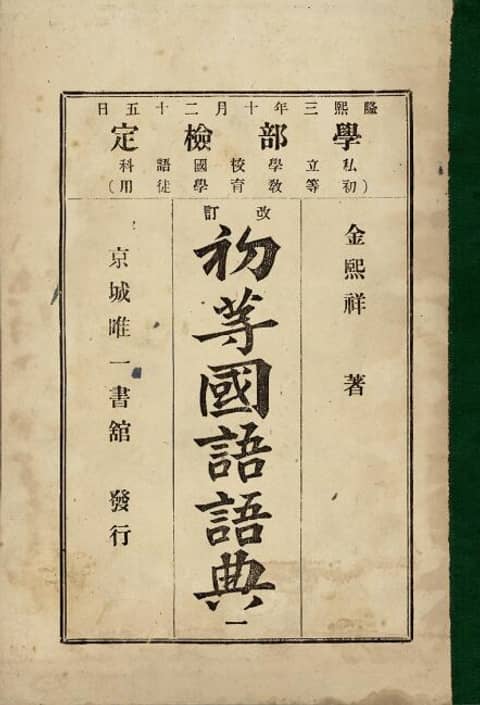 隆熙三年十月二十五日
學部檢定
私立學校國語科
(初等敎育學徒用)
金熙祥 著
改訂
初等國語語典 一
京城唯一書舘 發行